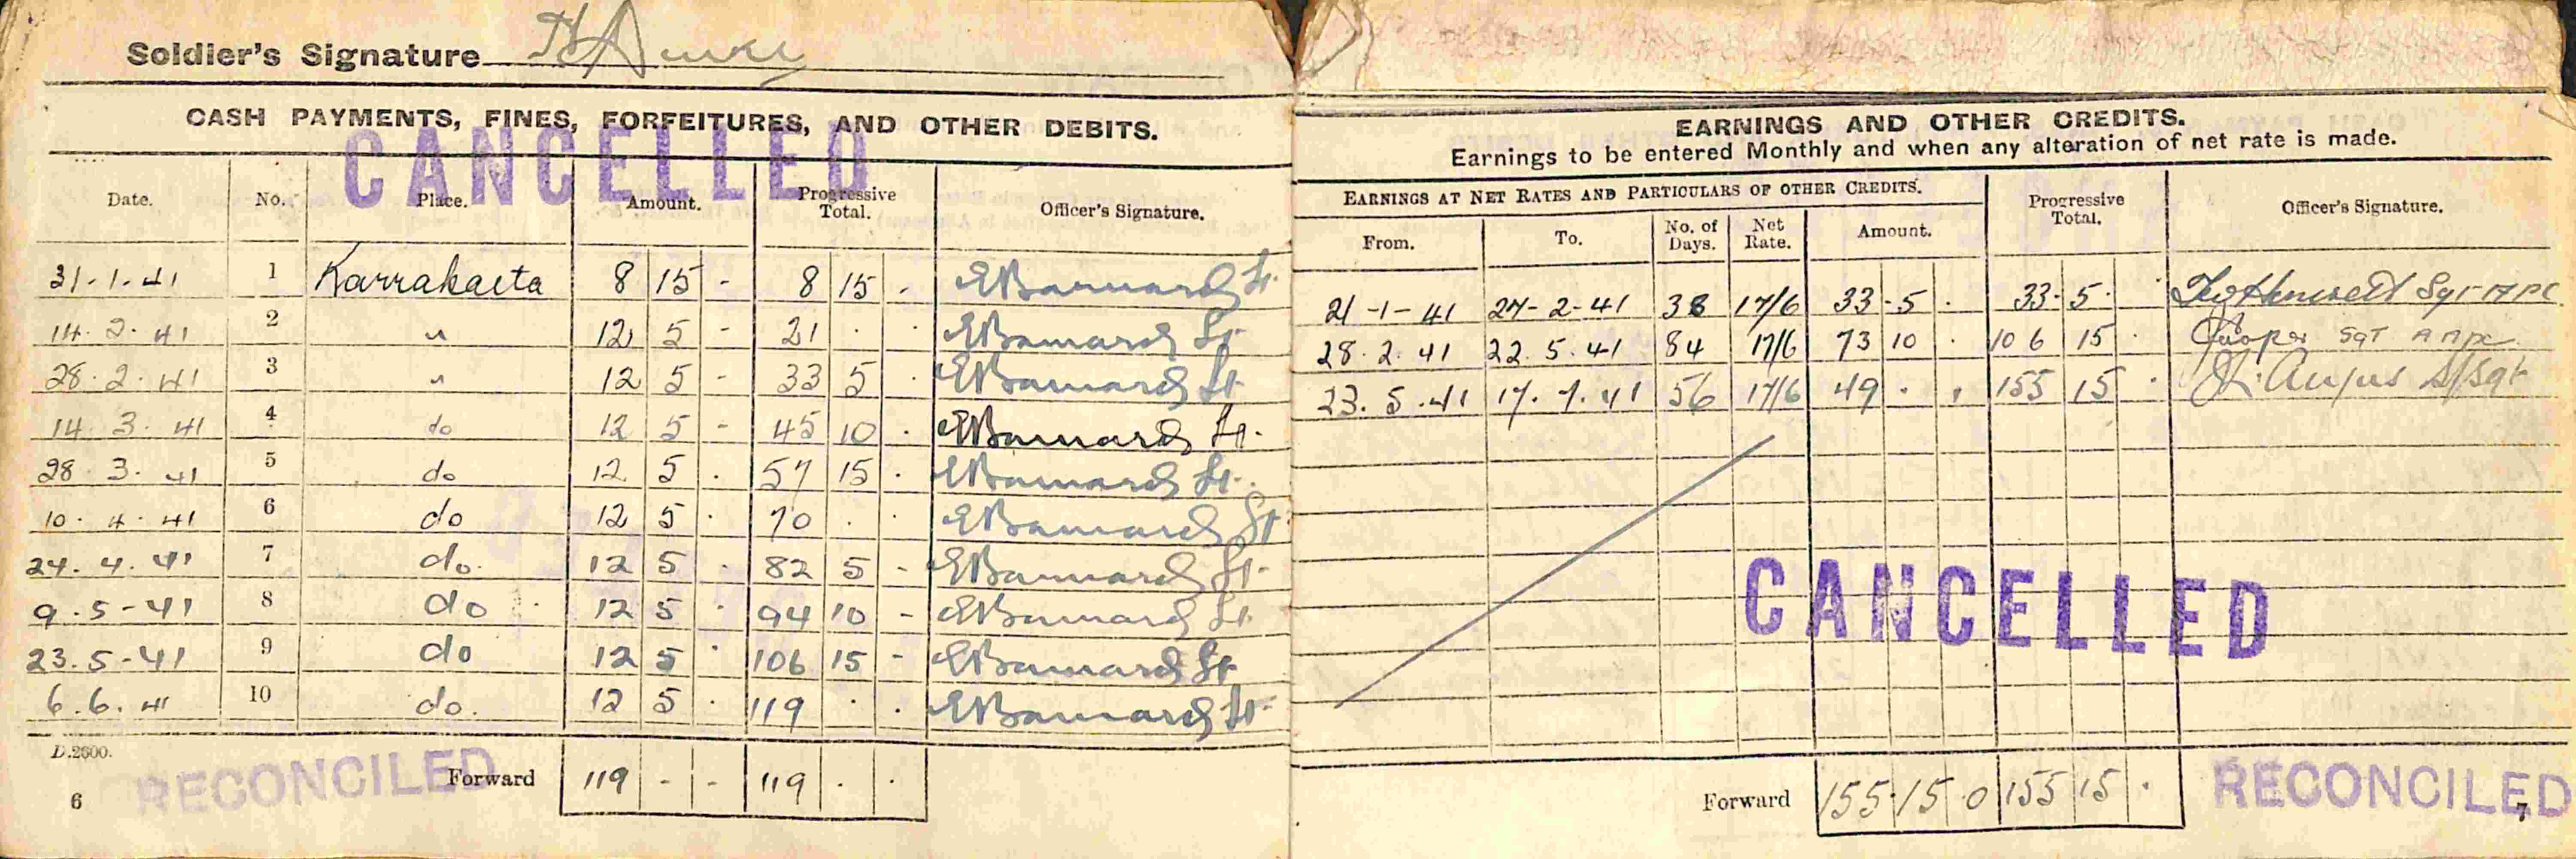 Soldier's Signature
CASH PAYMENTS, FINES, FORFEITURES, AND OTHER DEBITS.
CANCELLED
Date. No. Place. Amount. Progressive Total. Officer's Signature.
31-1-41 1 Karrakatta 8 15 - 8 15 - EBarnard Lt.
14.2.41 2 " 12 5 - 21 . . EBarnard Lt
28.2.41 3 " 12 5 - 33 5 . EBarnard Lt
14.3.41 4 do 12 5 - 45 10 . EBarnard Lt.
28.3.41 5 do 12 5 . 57 15 . EBarnard Lt.
10.4.41 6 do 12 5 . 70 . . EBarnard Lt
24.4.41 7 do. 12 5 . 82 5 - EBarnard Lt.
9.5-41 8 do 12 5 . 94 10 - EBarnard Lt.
23.5-41 9 do 12 5 . 106 15 - EBarnard Lt
6.6.41 10 do. 12 5 . 119 . . EBarnard Lt.
D.2600.
RECONCILED
Forward 119 - - 119 . .
6
EARNINGS AND OTHER CREDITS.
Earnings to be entered Monthly and when any alteration of net rate is made.
EARNINGS AT NET RATES AND PARTICULARS OF OTHER CREDITS. Progressive Total. Officer's Signature.
From. To. No. of Days. Net Rate. Amount.
21-1-41 27-2-41 38 17/6 33-5 . 33.5. Sgt
28.2.41 22.5.41 84 17/6 73 10 . 106 15 . Cooper SGT AAPC
23.5.41 17.7.41 56 17/6 49 . . 155 15 . Angus S/Sgt
CANCELLED
Forward 155.15.0 155 15 .
RECONCILED
7